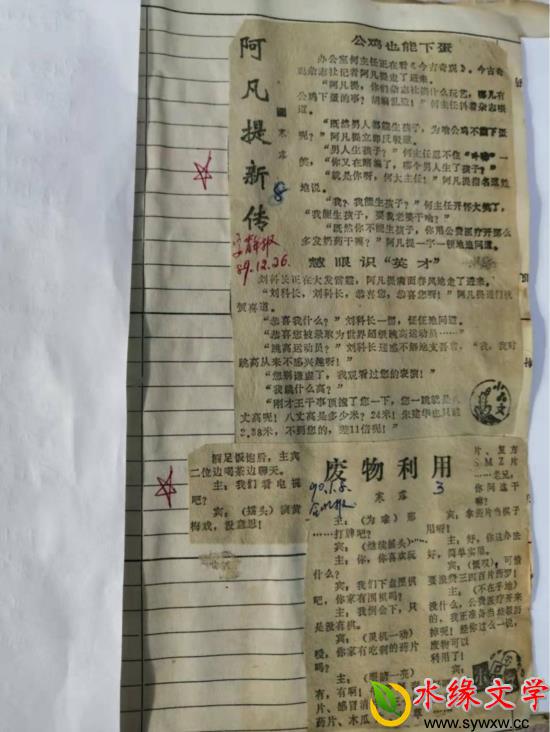 阿凡提新传
寒 露
8
安静报
89.12.26.
公鸡也能下蛋
办公室何主任正在看《今古奇观》。今古奇
观杂志社记者阿凡提走了进来。
“阿凡提，你们杂志社搞什么玩艺，哪儿有
公鸡下蛋的事？胡编乱造！”何主任抖着杂志喝
道。
“既然男人都能生孩子，为啥公鸡不能下蛋
呢？”阿凡提立即反驳道。
“男人生孩子？”何主任忍不住“卟哧”一
笑，“你又在瞎编了，哪个男人生了孩子？”
“就是你啊，何大主任！”阿凡提指名道姓
地说。
“我？我能生孩子？”何主任开怀大笑了，
“我能生孩子，要我老婆干啥？”
“既然你不能生孩子，你用公费医疗开那么
多发奶药干嘛？”阿凡提一字一顿地追问道。
慧眼识“英才”
刘科长正在大发雷霆，阿凡提满面春风地走了进来。
“刘科长，刘科长，恭喜您，恭喜您呀！”阿凡提进门就
贺喜道。
“恭喜我什么？”刘科长一愣，怔怔地问道。
“恭喜您被录取为世界超级跳高运动员……”
“跳高运动员？”刘科长迷惑不解地支吾着，“我，我对
跳高从来不感兴趣呀！”
“您别谦虚了，我观看过您的表演！”
“我跳什么高？”
“刚才王干事顶撞了您一下，您一跳就是八
丈高呢！八丈高是多少米？24米！朱建华也只跳
2.38米，不到您的，差11倍呢！”
小品文
废物利用
寒 露
3
90.1.5.
酒足饭饱后，主宾
二位边喝茶边聊天。
主：我们看电视
吧？
宾：（摇头）演黄
梅戏，没意思！
主：（为难）那
……打牌吧？
宾：（继续摇头）……
主：你，你喜欢玩
什么？
宾：我们下盘围棋
吧，你家有围棋吗？
主：我倒会下，只
是没有棋。
宾：（灵机一动）
嗳，你家有吃剩的药片
吗？
主：（眼睛一亮）
有，有啊！
片、感冒清
药片、木瓜
片、复方
SMZ片
……老兄，
你问这干
嘛？
宾：拿药片当棋子
用呀！
主：好，你这办法
好，简单实惠。
宾：（慨叹）可惜
要浪费三四百片药罗！
主：（不在乎地）
没什么，公费医疗开来
的，我正准备当垃圾扔
掉呢！经你这么一说，
废物可以
利用了！
宾：
水缘文学
www.sywxw.cc.com